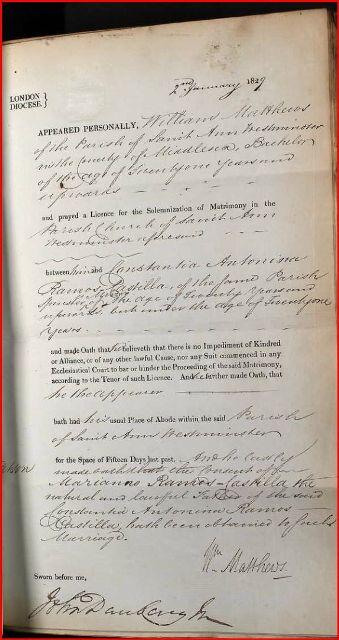 2nd January 1829
LONDON
DIOCESE }
APPEARED PERSONALLY, William Matthews
of the Parish of Saint Ann Westminster
in the County of Middlesex, Bachelor
of the age of Twentyone Years and
upwards
and prayed a Licence for the Solemnization of Matrimony in the
Parish Church of Saint Ann
Westminster aforesaid
between him and Constantia Antonina
Ramos Castilla, of the same Parish
Spinster of the age of Twenty Years and
upwards, but under the age of Twentyone
Years.
and made Oath that he believeth that there is no Impediment of Kindred
or Alliance, or of any other lawful Cause, nor any Suit commenced in any
Ecclesiastical Court to bar or hinder the Proceeding of the said Matrimony,
according to the Tenor of such Licence. And he further made Oath, that
he the appearer
hath had his usual Place of Abode within the said Parish
of Saint Ann Westminster
for the Space of Fifteen Days last past. And he lastly
made oath that the Consent of
Marianno Ramos Castilla the
natural and lawful Father of the said
Constantia Antonina Ramos
Castilla, hath been obtained to such
Marriage.
Wm Matthews
Sworn before me,
John Daubeny